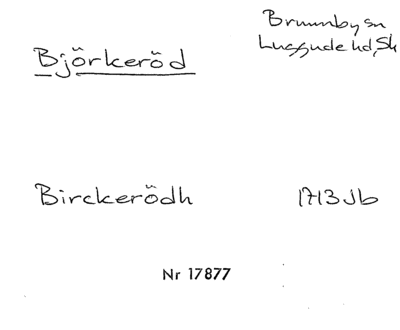 Björkeröd
Brunnby sn
Luggude hd, Sk
Birckerödh
1713 Jb
Nr 17877